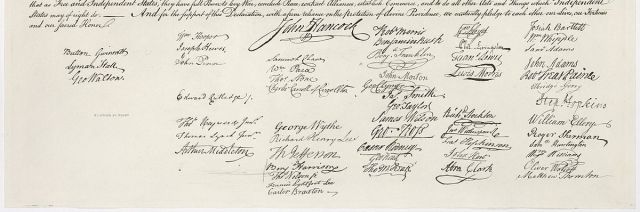 that as Free and Independent States, they have full Power to levy War, conclude Peace, contract Alliances, establish Commerce, and to do all other Acts and Things which Independent
States may of right do. — And for the support of this Declaration, with a firm reliance on the protection of divine Providence, we mutually pledge to each other our Lives, our Fortunes
and our sacred Honor.
John Hancock
Button Gwinnett
Lyman Hall
Geo Walton.
Wm Hooper
Joseph Hewes,
John Penn
Edward Rutledge /.
Thos Heyward Junr.
Thomas Lynch Junr.
Arthur Middleton
Samuel Chase
Wm Paca
Thos Stone
Charles Carroll of Carrollton
George Wythe
Richard Henry Lee
Th Jefferson
Benj Harrison
Thos Nelson jr.
Francis Lightfoot Lee
Carter Braxton
Robt Morris
Benjamin Rush
Benj. Franklin
John Morton
Geo Clymer
Jas. Smith
Geo. Taylor
James Wilson
Geo. Ross
Caesar Rodney
Geo Read
Tho M:Kean
Wm Floyd
Phil. Livingston
Frans. Lewis
Lewis Morris
Richd. Stockton
Jno Witherspoon
Fras. Hopkinson
John Hart
Abra Clark
Josiah Bartlett
Wm Whipple
Saml Adams
John Adams
Robt Treat Paine
Elbridge Gerry
Step. Hopkins
William Ellery
Roger Sherman
Sam Huntington
Wm Williams
Oliver Wolcott
Matthew Thornton